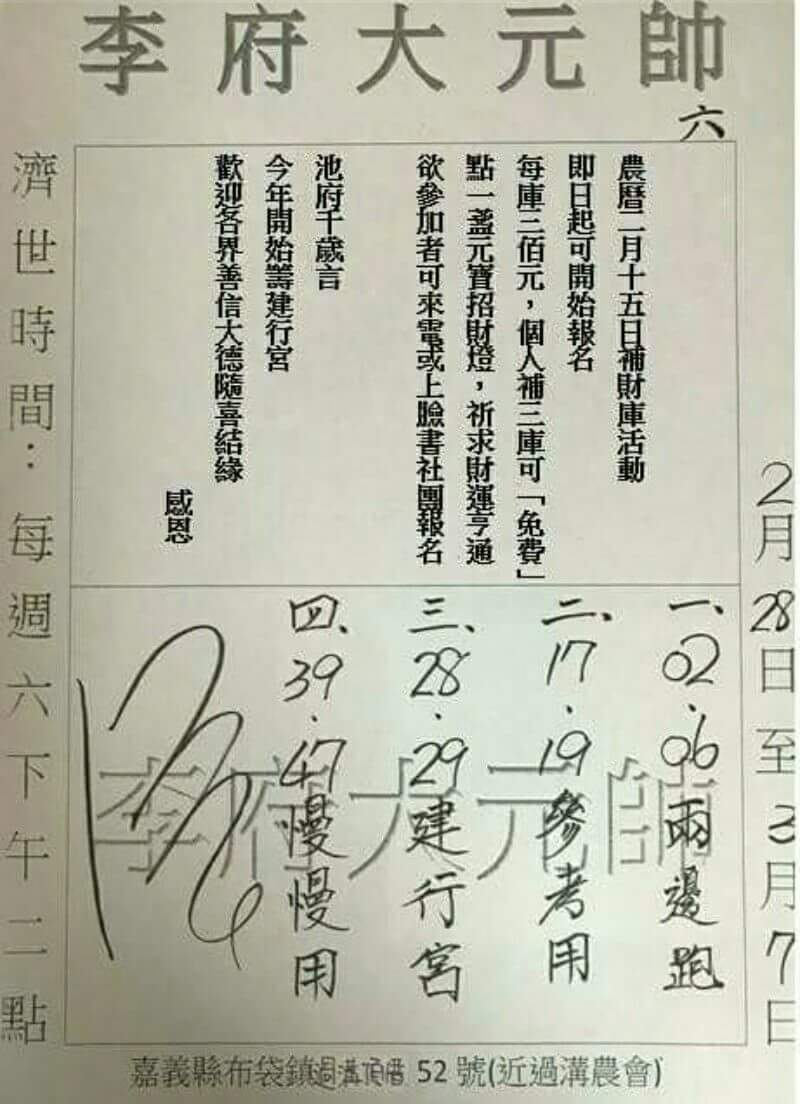 李府大元帥
六
2月28日至3月7日
農曆二月十五日補財庫活動
即日起可開始報名
每庫三佰元，個人補三庫可「免費」
點一盞元寶招財燈，祈求財運亨通
欲參加者可來電或上臉書社團報名
池府千歲言
今年開始籌建行宮
歡迎各界善信大德隨喜結緣
感恩
一、02.06兩邊跑
二、17.19參考用
三、28.29建行宮
四、39.47慢慢用
李府大元帥
濟世時間：每週六下午二點
嘉義縣布袋鎮 52 號(近過溝農會)